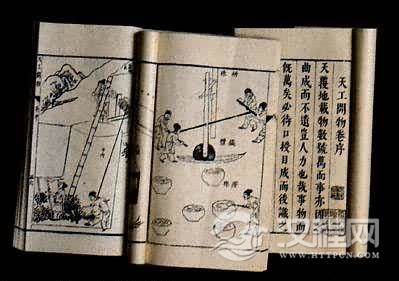 天工開物卷序
天覆地載物數號萬而事亦因
曲成而不遺豈人力也哉事物而
既萬矣必待口授目成而後識
天工開物
汉程网
HTTPCN.COM